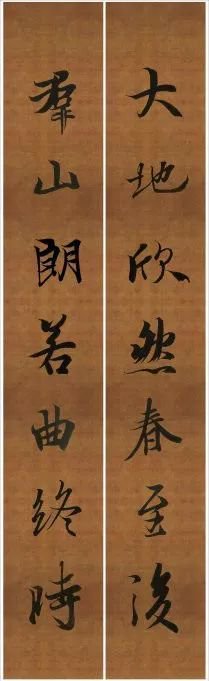 大地欣然春至後
群山朗若曲終時